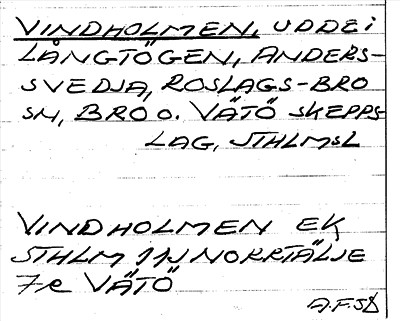 VINDHOLMEN, UDDE i
LÅNGTÖGEN, ANDERS-
SVEDJA, ROSLAGS-BRO
SN, BRO O. VÄTÖ SKEPPS
LAG, STHLMSL
VINDHOLMEN EK
STHLM 11J NORRTÄLJE
7e VÄTÖ